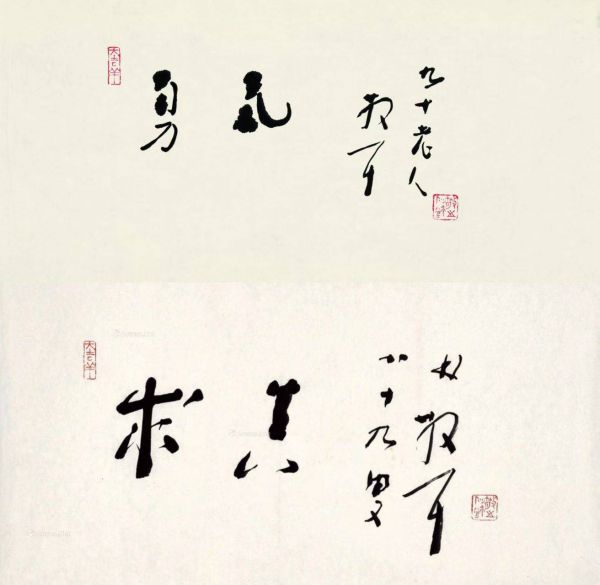 大吉羊
勇氣
九十老人
散耳
大吉羊
求真
林散耳
八十九叟